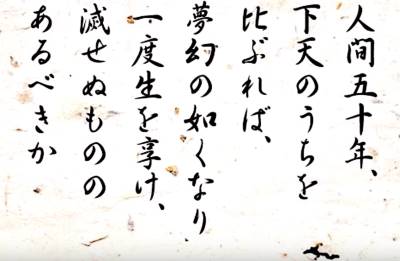 人間五十年、
下天のうちを
比ぶれば、
夢幻の如くなり
一度生を享け、
滅せぬものの
あるべきか